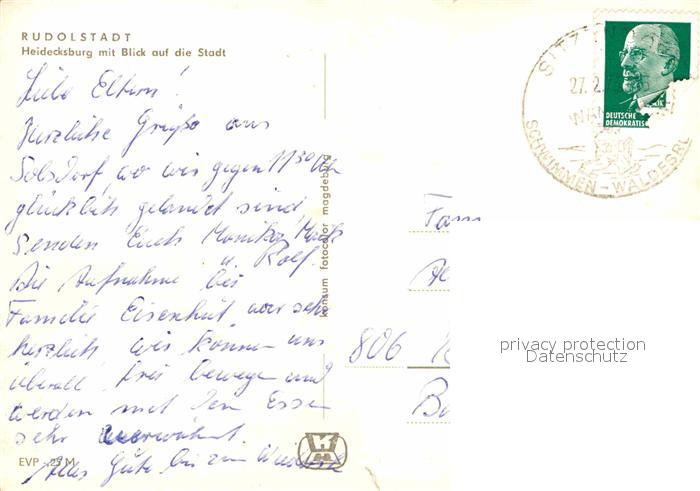 RUDOLSTADT
Heidecksburg mit Blick auf die Stadt
Liebe Eltern!
Herzliche Grüße aus
wo wir gegen 11 30 Uhr
glücklich gelandet sind,
senden Euch Monika,
u. Rolf.
Die Aufnahme bei
Familie Eisenhut war sehr
herzlich, wir können uns
überall frei bewegen und
werden mit dem Essen
sehr verwöhnt.
Alles Gute bis zum
EVP -,25 M
konsum fotocolor magdeburg
27.2.
SCHWIMMEN - WALDESRU
DEUTSCHE
DEMOKRATIS
Fam
806
privacy protection
Datenschutz